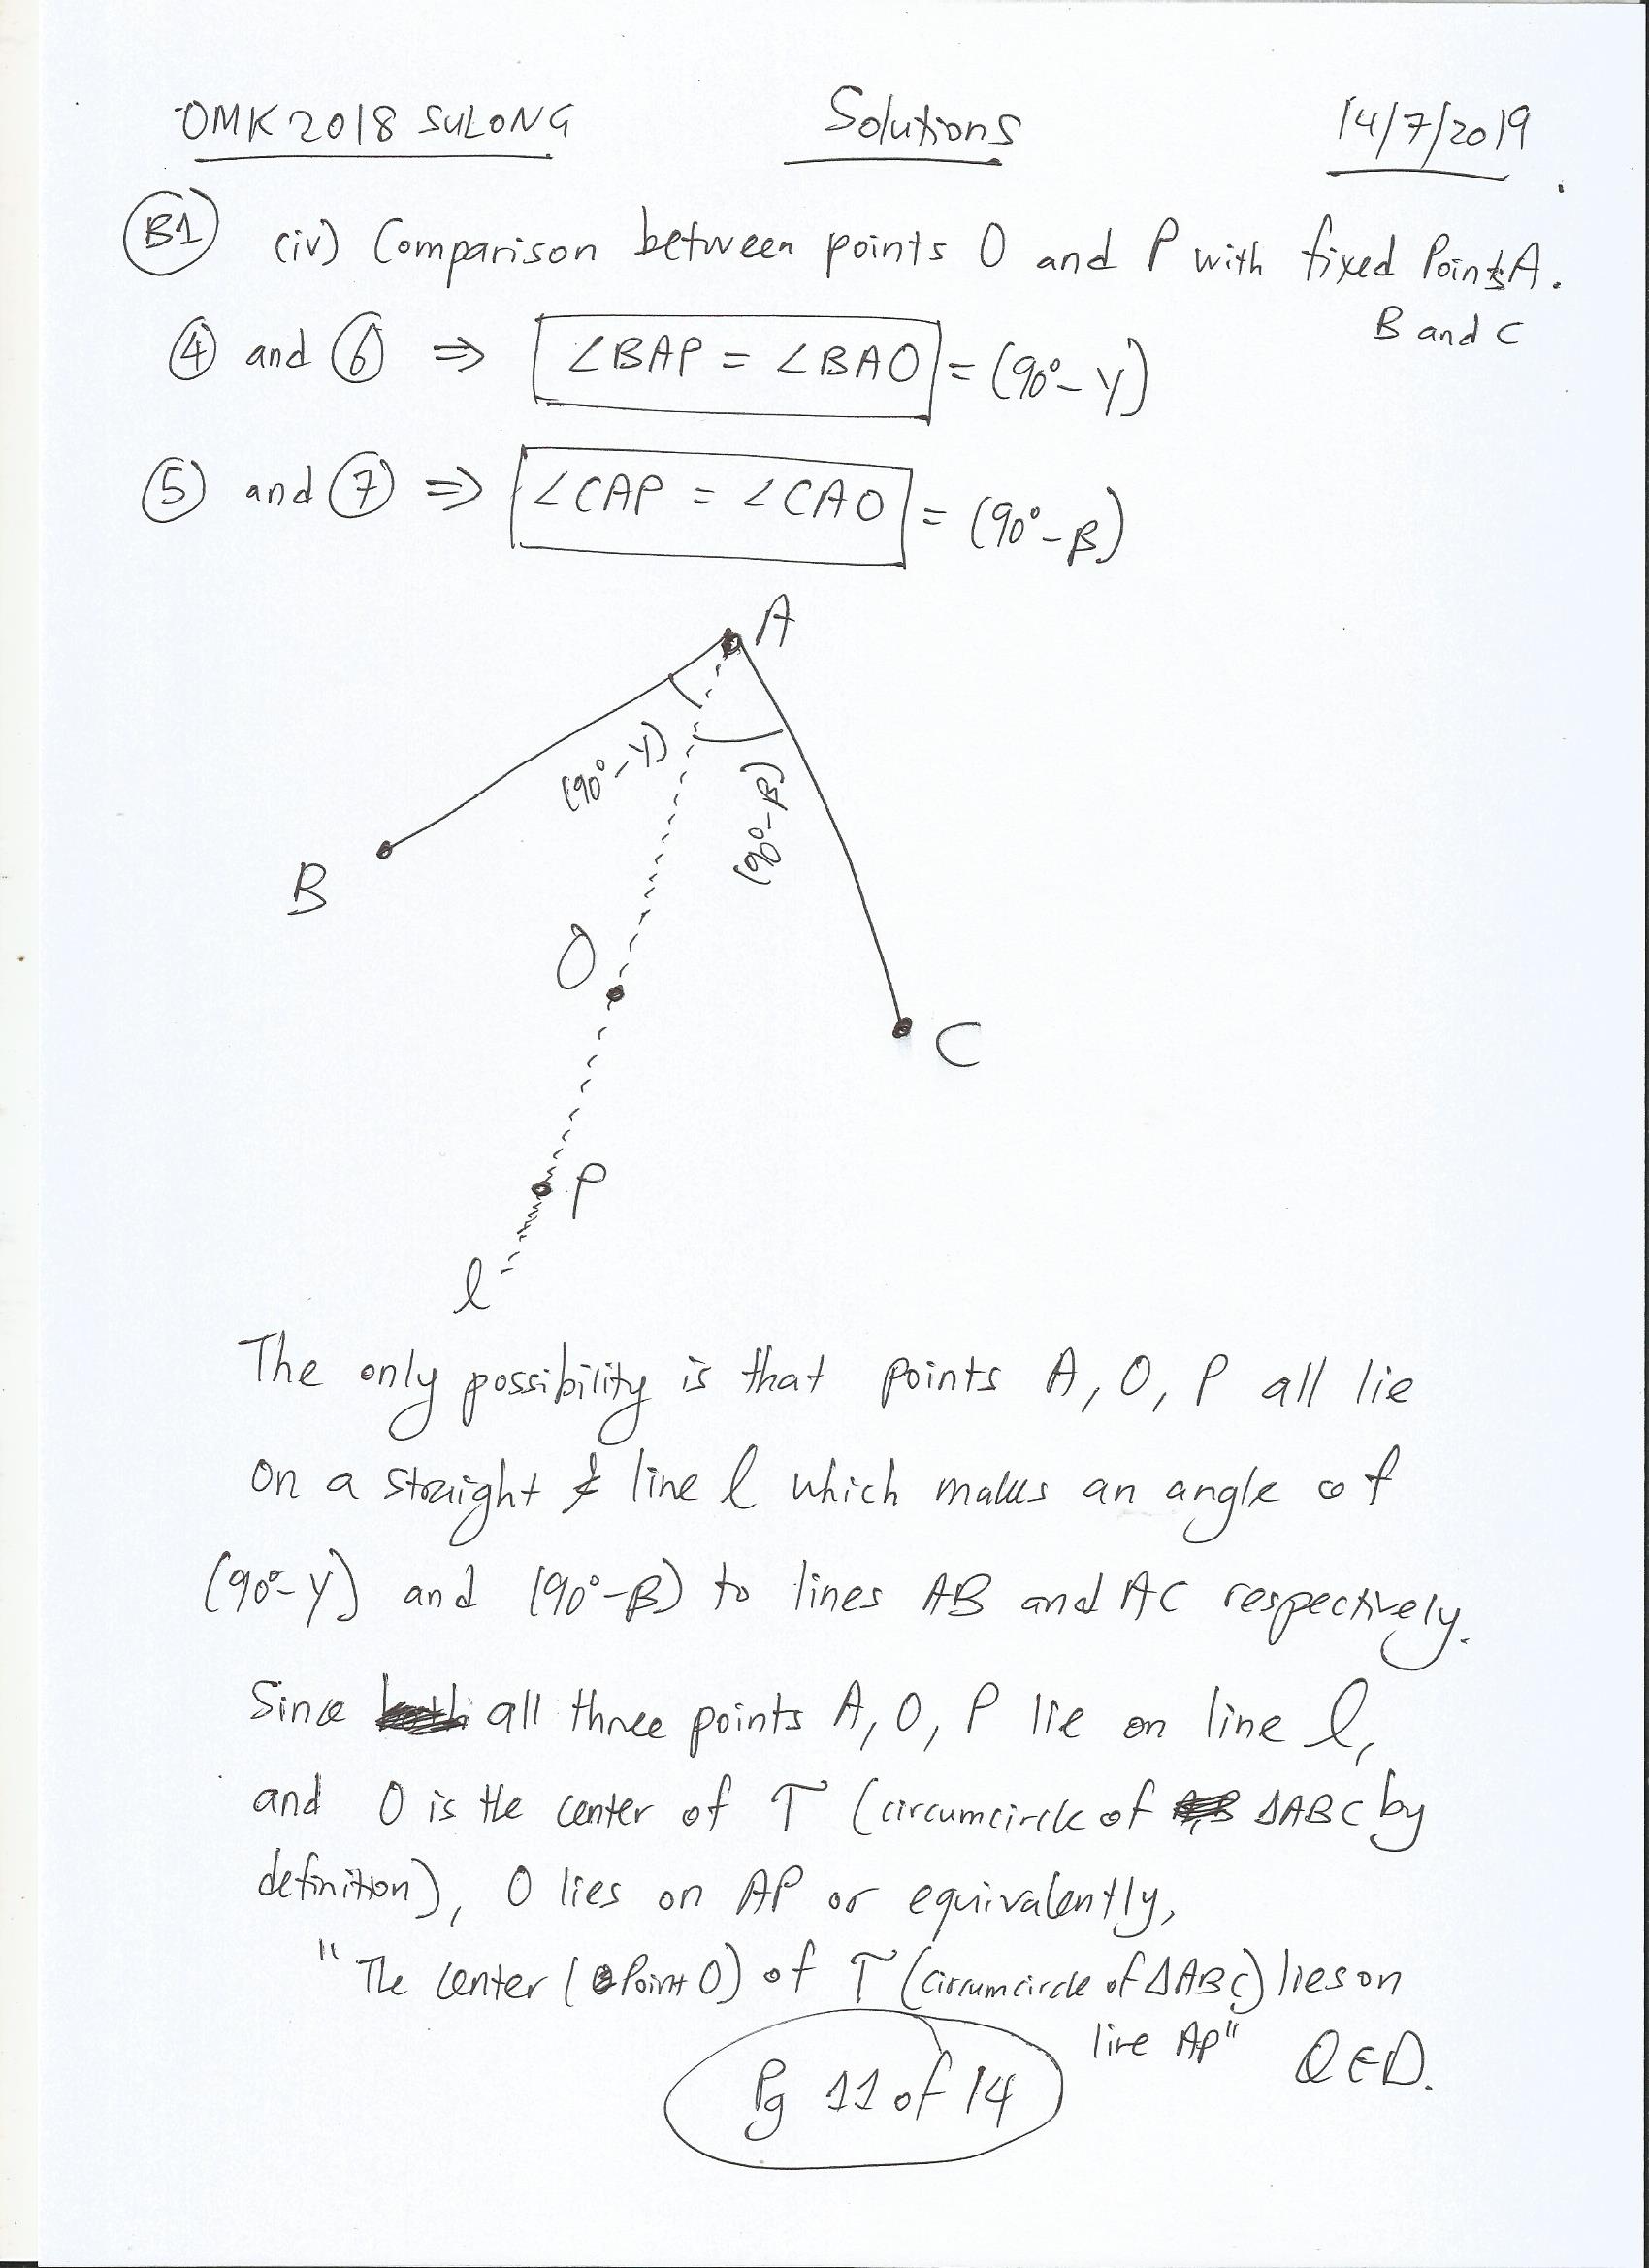 OMK 2018 SULONG Solutions 14/7/2019
B1 (iv) Comparison between points O and P with fixed Points A.
B and C
④ and ⑥ ⇒ ∠BAP = ∠BAO = (90°-γ)
⑤ and ⑦ ⇒ ∠CAP = ∠CAO = (90°-β)
A
(90°-γ)
(90°-β)
B
O
C
P
l
The only possibility is that points A, O, P all lie
on a straight line l which makes an angle of
(90°-γ) and (90°-β) to lines AB and AC respectively.
Since all three points A, O, P lie on line l,
and O is the center of T (circumcircle of ΔABC by
definition), O lies on AP or equivalently,
"The center (Point O) of T (circumcircle of ΔABC) lies on
line AP" QED.
Pg 11 of 14